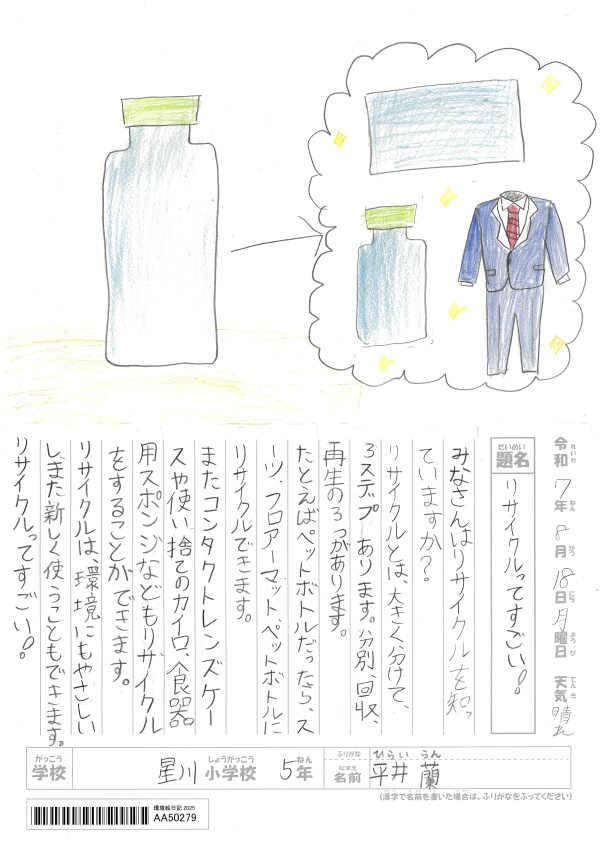 令和 7年 8月 18日 月曜日 天気 晴れ
れいわ ねん がつ にち ようび てんき
だいめい
題名 リサイクルってすごい!!
みなさんはリサイクルを知っ
ていますか?
リサイクルとは、大きく分けて、
3ステプあります。分別、回収、
再生の3つがあります。
たとえばペットボトルだったら、ス
ーツ、フロアーマット、ペットボトルに
リサイクルできます。
またコンタクトレンズケー
スや使い捨てのカイロ、食器
用スポンジなどもリサイクル
をすることができます。
リサイクルは、環境にもやさしい
し、また新しく使うこともできます。
リサイクルってすごい!!
がっこう しょうがっこう ねん
学校 星川 小学校 5年
ふりがな ひらい らん
なまえ
名前 平井 蘭
(漢字で名前を書いた場合は、ふりがなをふってください)
環境絵日記 2025
AA50279